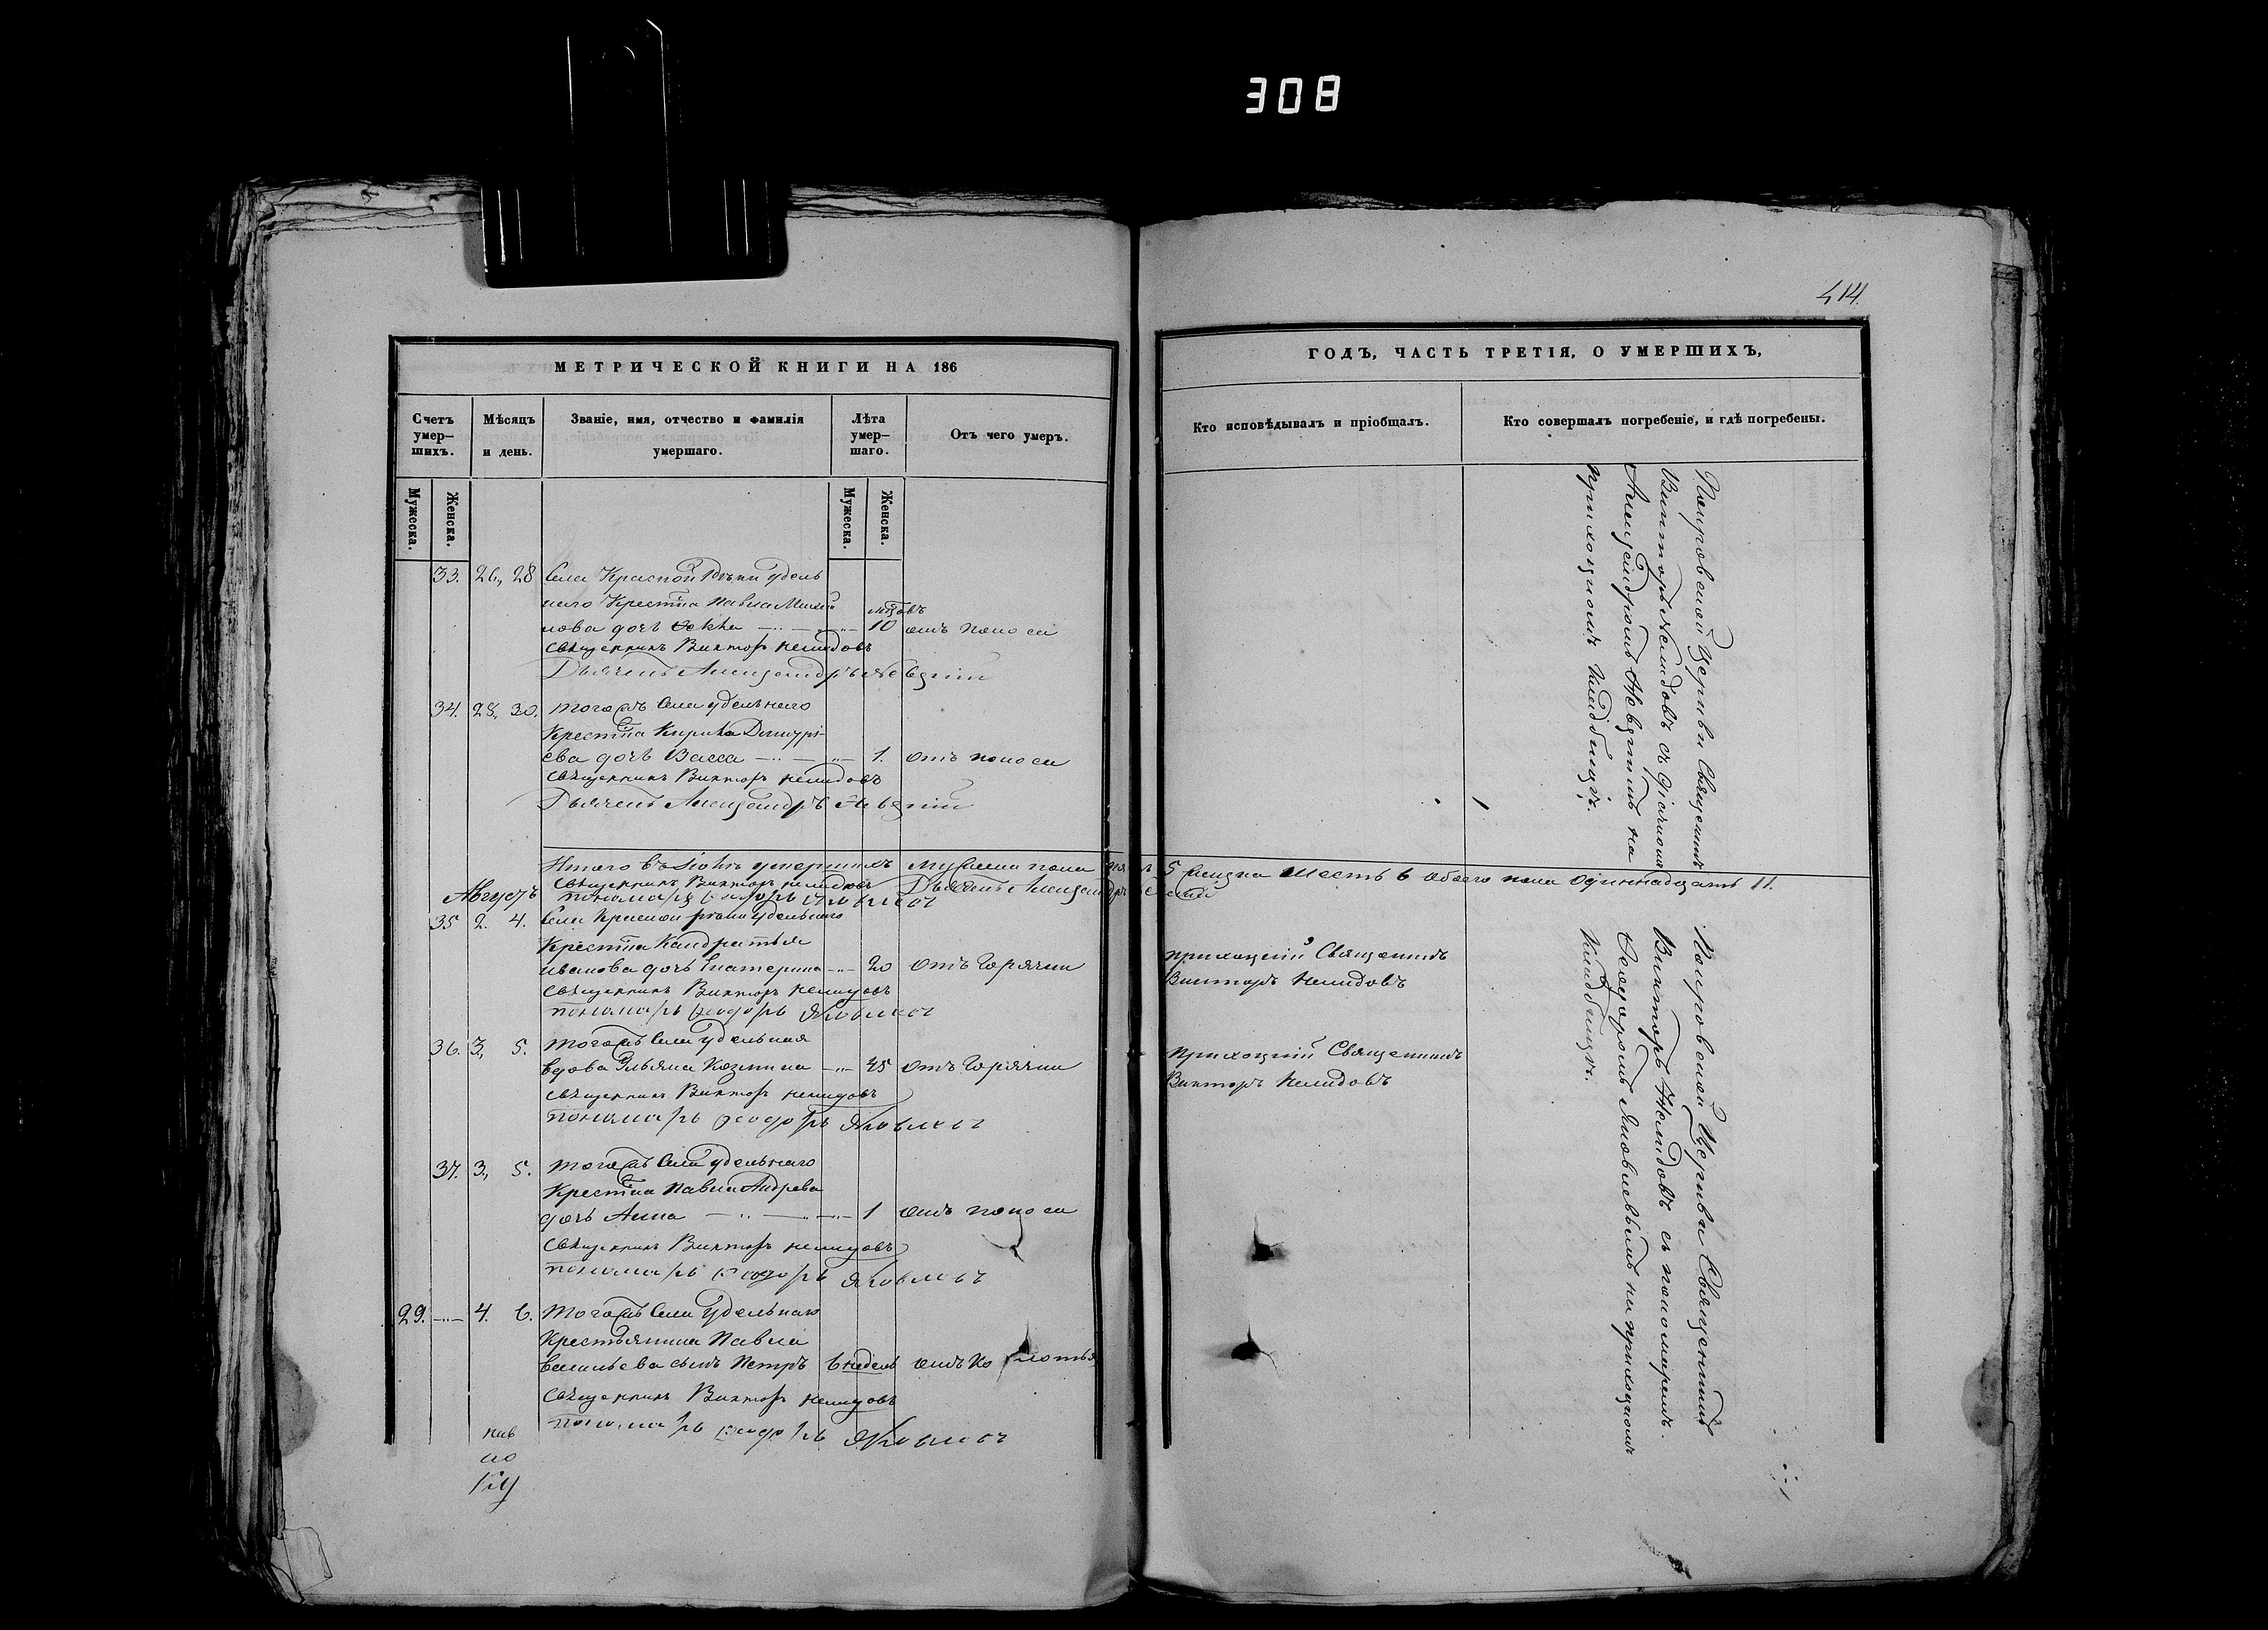 308
414
МЕТРИЧЕСКОЙ КНИГИ НА 186
Счетъ умер-шихъ.
Мѣсяцъ и день.
Званіе, имя, отчество и фамилія умершаго.
Лѣта умер-шаго.
Отъ чего умеръ.
Мужеска.
Женска.
Мужеска.
Женска.
33. 26, 28 Села Красной рѣки удель
наго Крестна Павла
лова дочь Ѳекла 10 отъ поноса
Священникъ Викторъ Немидовъ
Дьячекъ Александръ
34. 28, 30. тогожъ села удельнаго
Крестна Кирика Димитрі-
ева дочь Васса 1. отъ поноса
Священникъ Викторъ Немидовъ
Дьячекъ Александръ
Итого въ Іюлѣ умершихъ мужеска пола 5 женска шесть 6 обоего пола одиннадцать 11.
Священникъ Викторъ Немидовъ Дьячекъ Александръ
Августъ пономарь Ѳеодоръ Яковлевъ
35 2. 4. Села Красной рѣки удельнаго
Крестна Кандратья
Иванова дочь Екатерина 20 отъ горячки
Священникъ Викторъ Немидовъ
пономарь Ѳеодоръ Яковлевъ
36. 3, 5. тогожъ села удельная
вдова Ульяна Козмина 45 отъ горячки
Священникъ Викторъ Немидовъ
пономарь Ѳеодоръ Яковлевъ
37. 3, 5. тогожъ села удельнаго
Крестна Павла Андрева
дочь Анна 1 отъ поноса
Священникъ Викторъ Немидовъ
пономарь Ѳеодоръ Яковлевъ
29. 4. 6. тогожъ села удельнаго
Крестьянина Павла
Васильева сынъ Петръ 6 недель отъ
Священникъ Викторъ Немидовъ
пономарь Ѳеодоръ Яковлевъ
ГОДЪ, ЧАСТЬ ТРЕТІЯ, О УМЕРШИХЪ,
Кто исповѣдывалъ и пріобщалъ.
Кто совершалъ погребеніе, и гдѣ погребены.
Покровской Церкви Священникъ
Викторъ Немидовъ съ дьячкомъ
Александромъ на
приходскомъ кладбищѣ.
приходскій Священникъ
Викторъ Немидовъ
приходскій Священникъ
Викторъ Немидовъ
Покровской Церкви Священникъ
Викторъ Немидовъ съ пономаремъ
Ѳеодоромъ Яковлевымъ на приходскомъ
кладбищѣ.